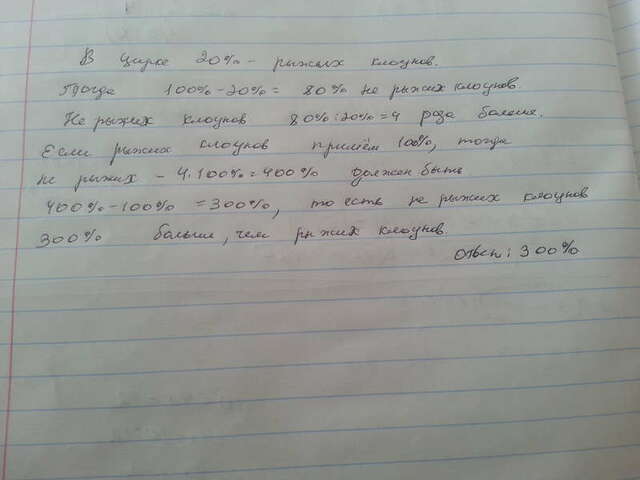 В цирке 20% - рыжих клоунов.
Тогда 100%-20%= 80% не рыжих клоунов.
Не рыжих клоунов 80%:20%=4 раза больше.
Если рыжих клоунов примем 100%, тогда
не рыжих - 4·100%=400% должен быть
400%-100% =300%, то есть не рыжих клоунов
300% больше, чем рыжих клоунов.
Ответ: 300%